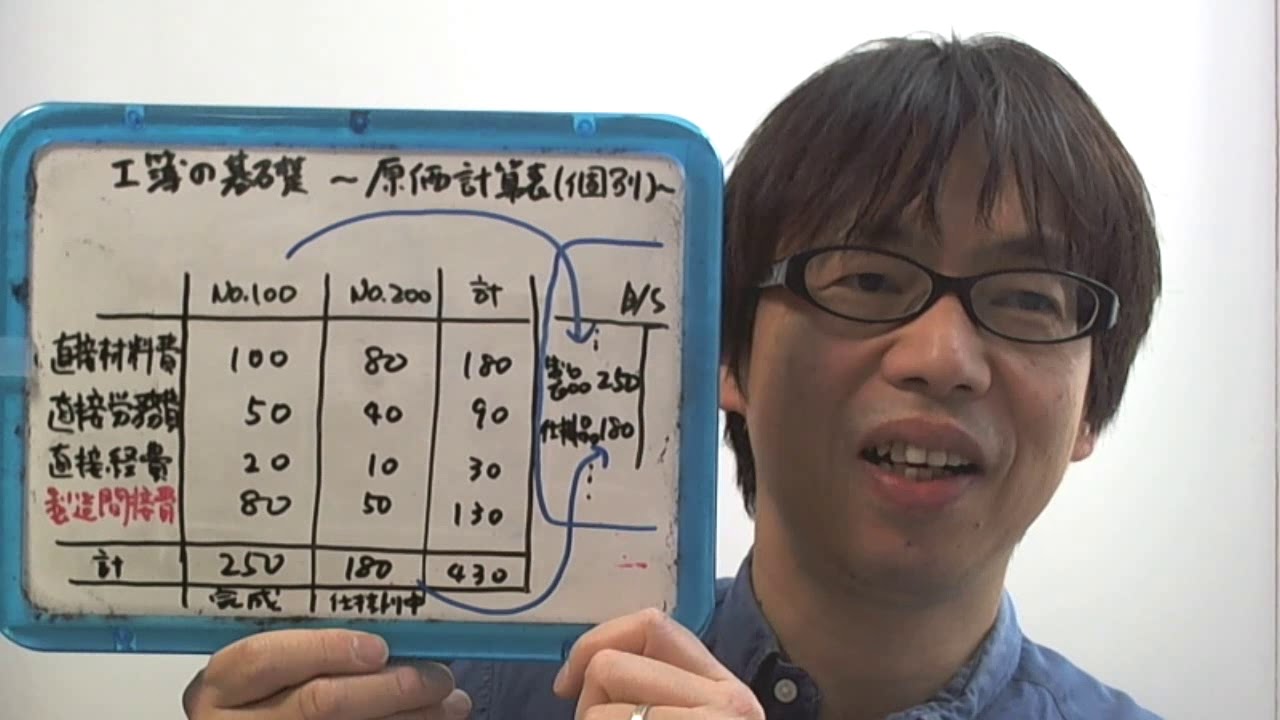 工簿の基礎 ～原価計算表(個別)～
No.100 No.200 計
直接材料費 100 80 180
直接労務費 50 40 90
直接経費 20 10 30
製造間接費 80 50 130
計 250 180 430
完成 仕掛り中
B/S
製品 250
仕掛品 180